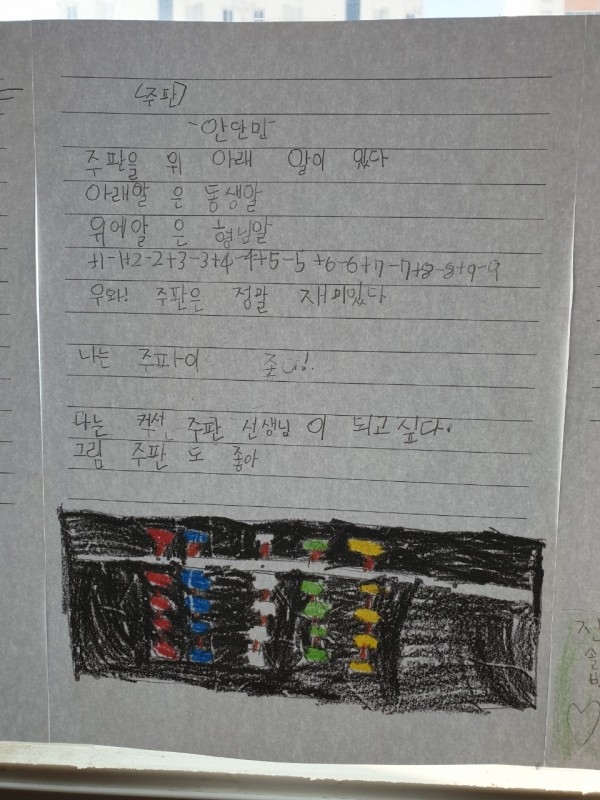 <주판>
-안단민-
주판을 위 아래 알이 있다
아래알 은 동생알
위에알 은 형님알
+1-1+2-2+3-3+4-4+5-5+6-6+7-7+8-8+9-9
우와! 주판은 정말 재미있다
나는 주파이 좋너!
나는 커선 주판 선생님 이 되고 싶다.
그림 주판 도 좋아
진
솔